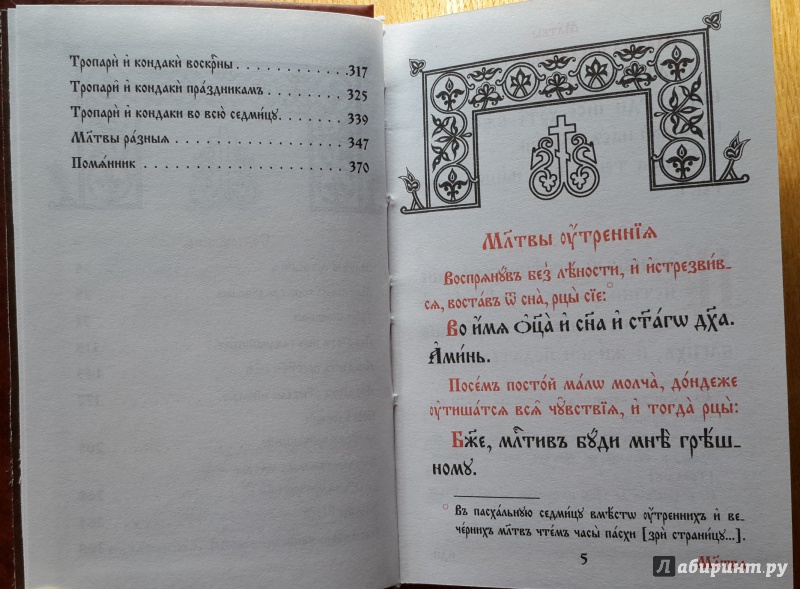 Тропарѝ и҆ кондакѝ воскр҃ны . . . . . . . . . . . . 317
Тропарѝ и҆ кондакѝ пра́здникамъ . . . . . . . . . 325
Тропарѝ и҆ кондаки во всю̀ седми́цу . . . . . . . 339
Мл҃твы ра̑зныя . . . . . . . . . . . . . . . . . . . . 347
Помѧ́нник . . . . . . . . . . . . . . . . . . . . . . . 370
Мл҃твы ᲂу҆́тренніѧ
Воспрѧнꙋ́въ без̾ лѣ́ности, и҆ и҆стрезви́в-
сѧ, воста́въ ѿ сна̀, рцы̀ сїѐ:
Во и҆́мѧ ѻ҆ц҃а̀ и҆ сн҃а и҆ ст҃а́гѡ дх҃а.
А҆ми́нь.
Посе́мъ посто́й ма́лѡ молча̀, до́ндеже
ᲂу҆тиша́тсѧ всѧ̑ чꙋ̑вствїѧ, и҆ тогда̀ рцы̀:
Бж҃е, мл҃тивъ бꙋ́ди мнѣ̀ грѣ́ш-
ному.
Въ пасха́льнꙋю седми́цꙋ вмѣ́стѡ ᲂу҆́треннихъ и҆ ве-
че́рнихъ мл҃твъ чте́мъ часы̀ па́схи [зрѝ страни́цꙋ...].
5
Мл҃тва
Лабиринт.ру